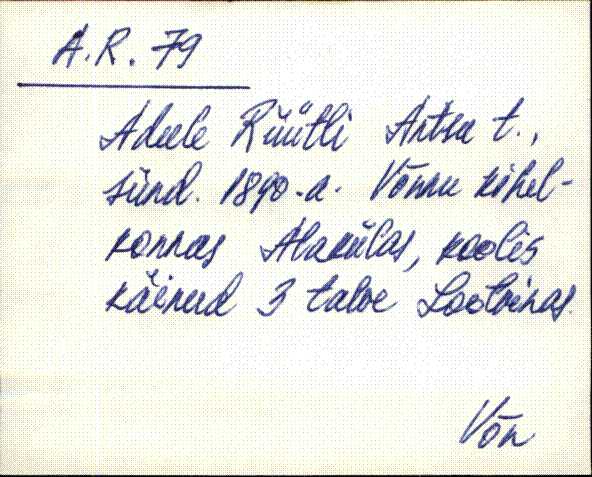 A.R. 79
Adeele Rüütli Antsu t.,
sünd. 1890.a. Võnnu kihel-
konnas Alakülas, koolis
käinud 3 talve Lootvinas.
Võn